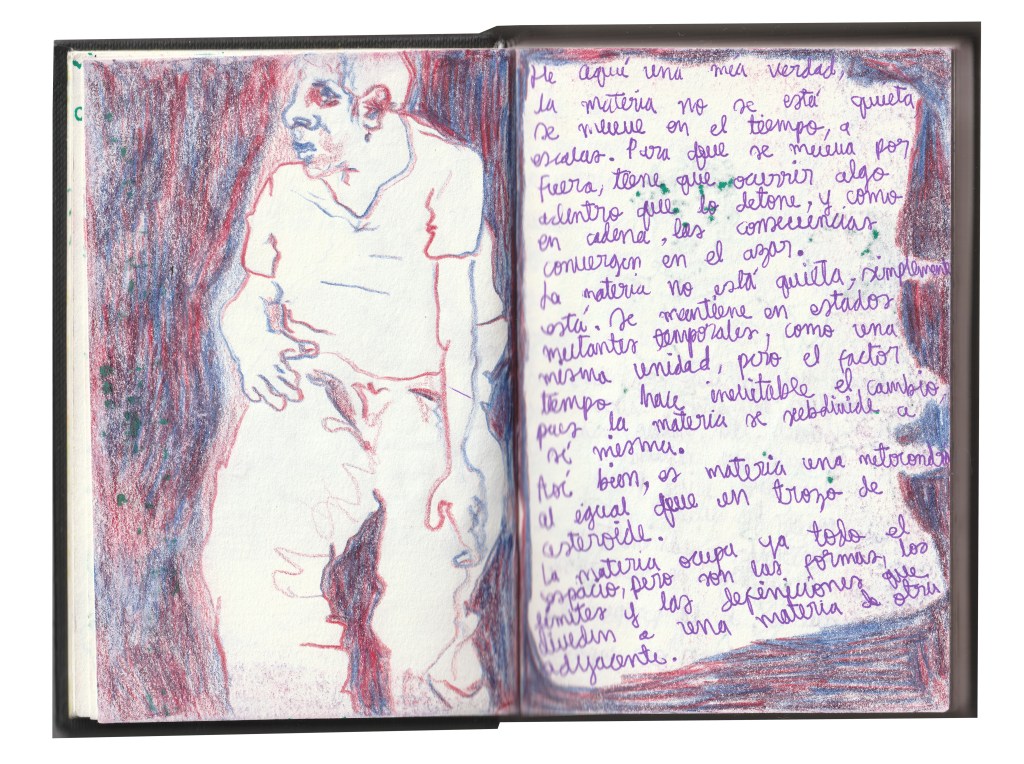 He aquí una mea verdad,
la materia no se está quieta
se mueve en el tiempo, a
escalas. Para que se mueva por
fuera, tiene que ocurrir algo
adentro que lo detone, y como
en cadena, las consecuencias
convergen en el azar.
La materia no está quieta, simplemente
está. Se mantiene en estados
mutantes temporales, como una
misma unidad, pero el factor
tiempo hace inevitable el cambio
pues la materia se subdivide a
sí misma.
Así bien, es materia una mitocondria
al igual que un trozo de
asteroide.
La materia ocupa ya todo el
espacio, pero son las formas, los
límites y las definiciones que
dividen a una materia de otra
adyacente.